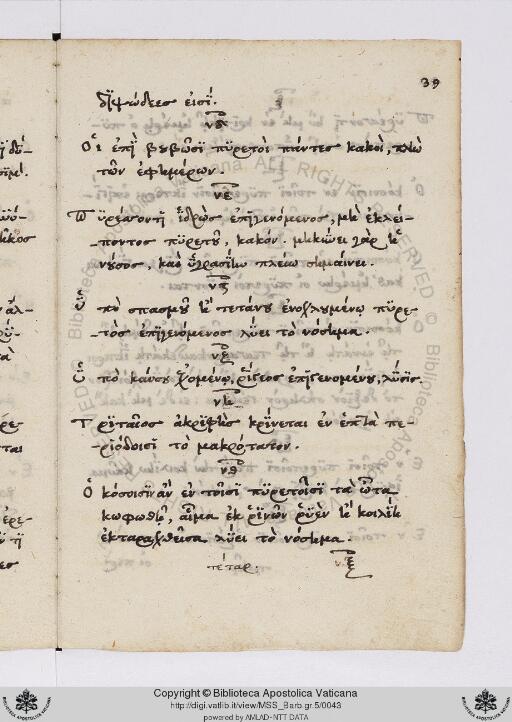 39
διψώδεες εἰσί.
νδ
Οἱ ἐπὶ βουβῶσι πυρετοὶ πάντες κακοὶ, πλὴν
τῶν ἐφημέρων.
νε
Πυρέσσοντι ἱδρὼς ἐπιγενόμενος, μὴ ἐκλεί-
-ποντος πυρετοῦ, κακόν. μηκύνει γὰρ ἡ
νόσος, καὶ ὑγρασίην πλείω σημαίνει.
νς
Ὑπὸ σπασμοῦ ἢ τετάνου ἐνοχλουμένῳ πυρε-
τὸς ἐπιγενόμενος λύει τὸ νόσημα.
νζ
Ὑπὸ καύσου ἐχομένῳ, ῥίγεος ἐπιγενομένου, λύσις
νη
Τριταῖος ἀκριβὴς κρίνεται ἐν ἑπτὰ πε-
ριόδοισι τὸ μακρότατον.
νθ
Ὁκόσοισιν ἂν ἐν τοῖσι πυρετοῖσι τὰ ὦτα
κωφωθῇ, αἷμα ἐκ ῥινῶν ῥυὲν ἢ κοιλίη
ἐκταραχθεῖσα λύει τὸ νόσημα.
τέταρ.
ξ
Copyright © Biblioteca Apostolica Vaticana
http://digi.vatlib.it/view/MSS_Barb.gr.5/0043
powered by AMLAD-NTT DATA